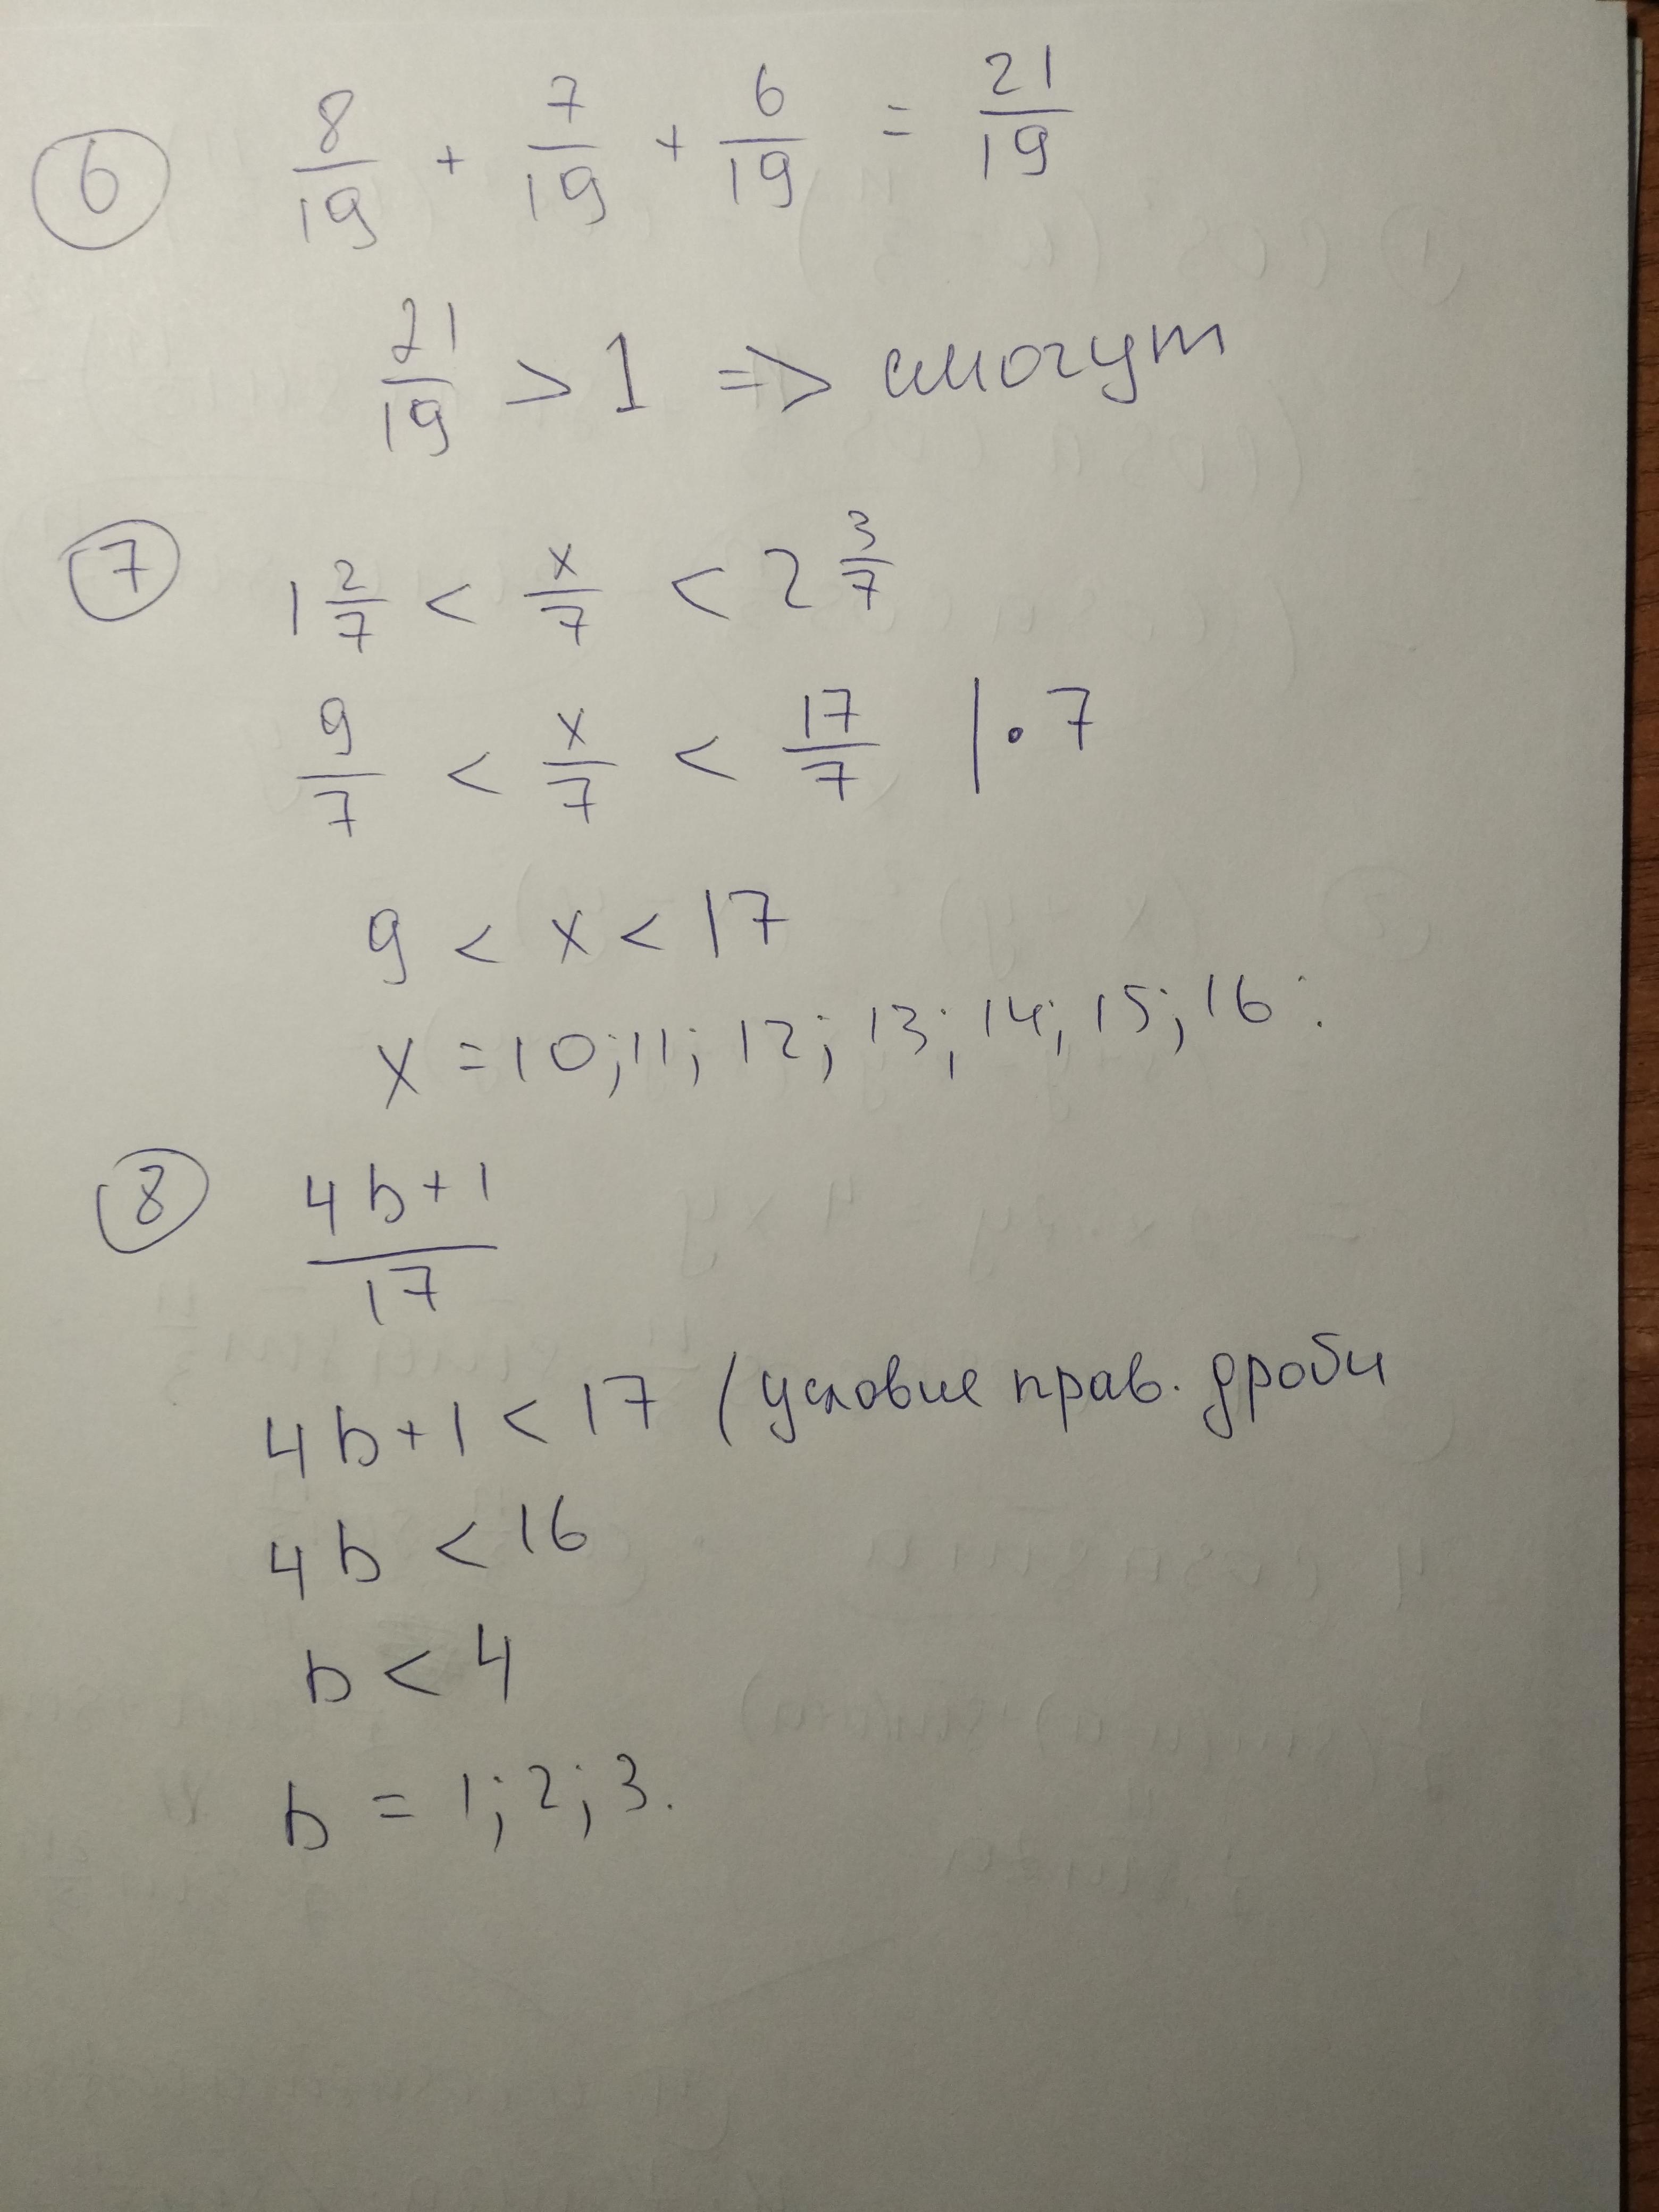 6 8/19 + 7/19 + 6/19 = 21/19
21/19 > 1 => смогут
7 1 2/7 < x/7 < 2 3/7
9/7 < x/7 < 17/7 | · 7
9 < x < 17
x = 10; 11; 12; 13; 14; 15; 16.
8 4b+1/17
4b+1 < 17 (условие прав. дроби
4b < 16
b < 4
b = 1; 2; 3.